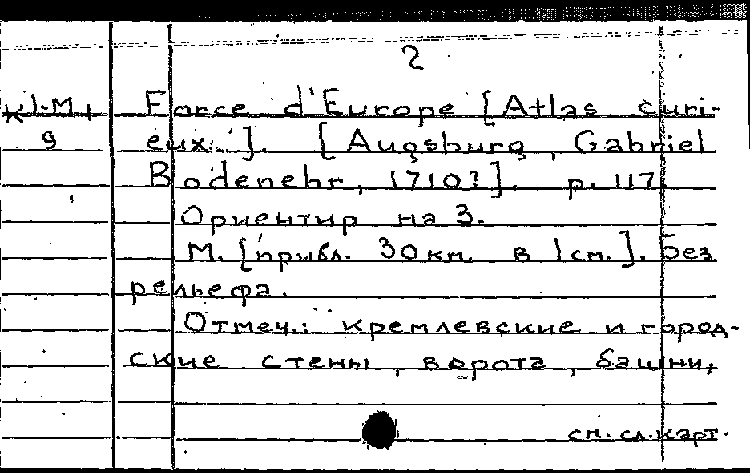 2
К)-М 1 Force d'Europe [Atlas curi-
9 eux.]. [Augsburg, Gabriel
Bodenehr, 1710?]. p. 117.
Ориентир на З.
М. [прибл. 30 км. в 1 см.]. Без
рельефа.
Отмеч.: кремлевские и город-
ские стены, ворота, башни,
см. сл. карт.